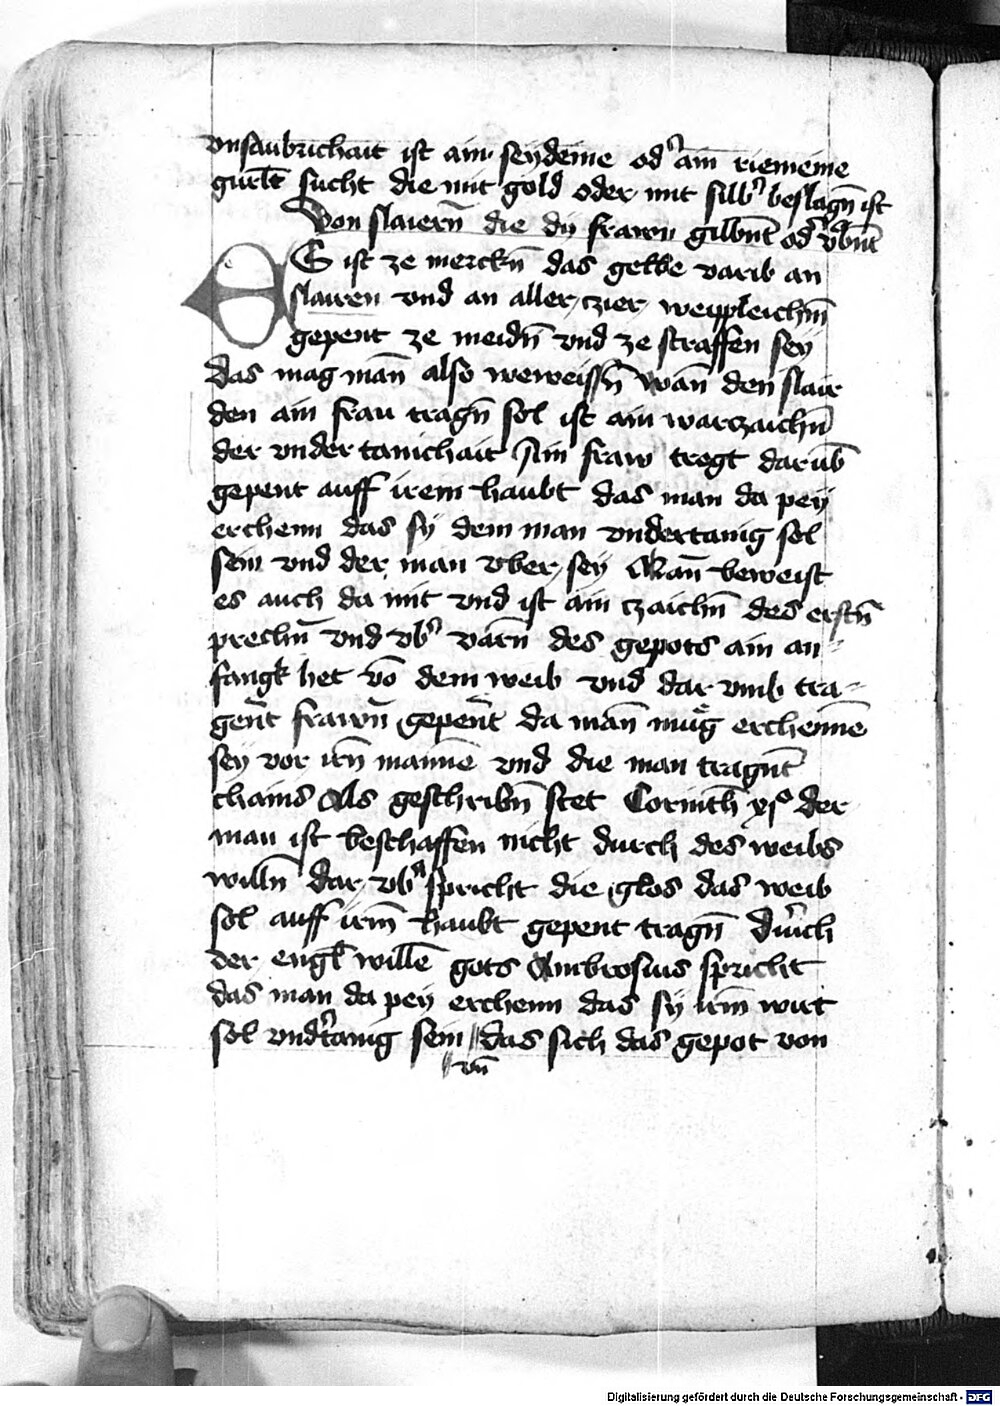 vnsaubrichait ist ain seydeine od' ain riemeine
gurtl sucht die mit gold oder mit silb' beslagn̄ ist
Von slaiern̄ die dy frawn gilbnt od' v̈bnt
ES ist ze merckn̄ das gelbe varib an
slairen vnd an aller czier weippleichm̄
gepent ze meidn̄ vnd ze straffen sey
das mag man̄ also weweissn̄ wan̄ den slair
den ain frau tragn̄ sol ist ain warczaichn̄
der vnder tanichait Ain fraw tregt darub̄
gepent auff irem haubt das man da pey
erchenn das sy dem man vndertanig sol
sein vnd der man vber sey Man̄ beweist
es auch da mit vnd ist ain czaichn̄ des erstn̄
prechn̄ vnd vb' varn̄ des gepots ain an=
fangk het vō dem weib vnd dar vmb tra=
gen̄t frawn̄ gepen̄t da man̄ mu̇g erchennē
sey vor irn̄ mannē vnd die man tragnt̄
chains Als geschribn̄ stet Corinth̄ xjº der
man ist beschaffen nicht durch des weibs
willn̄ dar vb' spricht die glos das weib
sol auff irm̄ haubt gepent tragn̄ durch
der engl̄ willē gots Ambrosius spricht
das man da pey erchenn das sy irm̄ wirt
sol vnd'tanig sein das sich das gepot von
vn̄
Digitalisierung gefördert durch die Deutsche Forschungsgemeinschaft - DFG